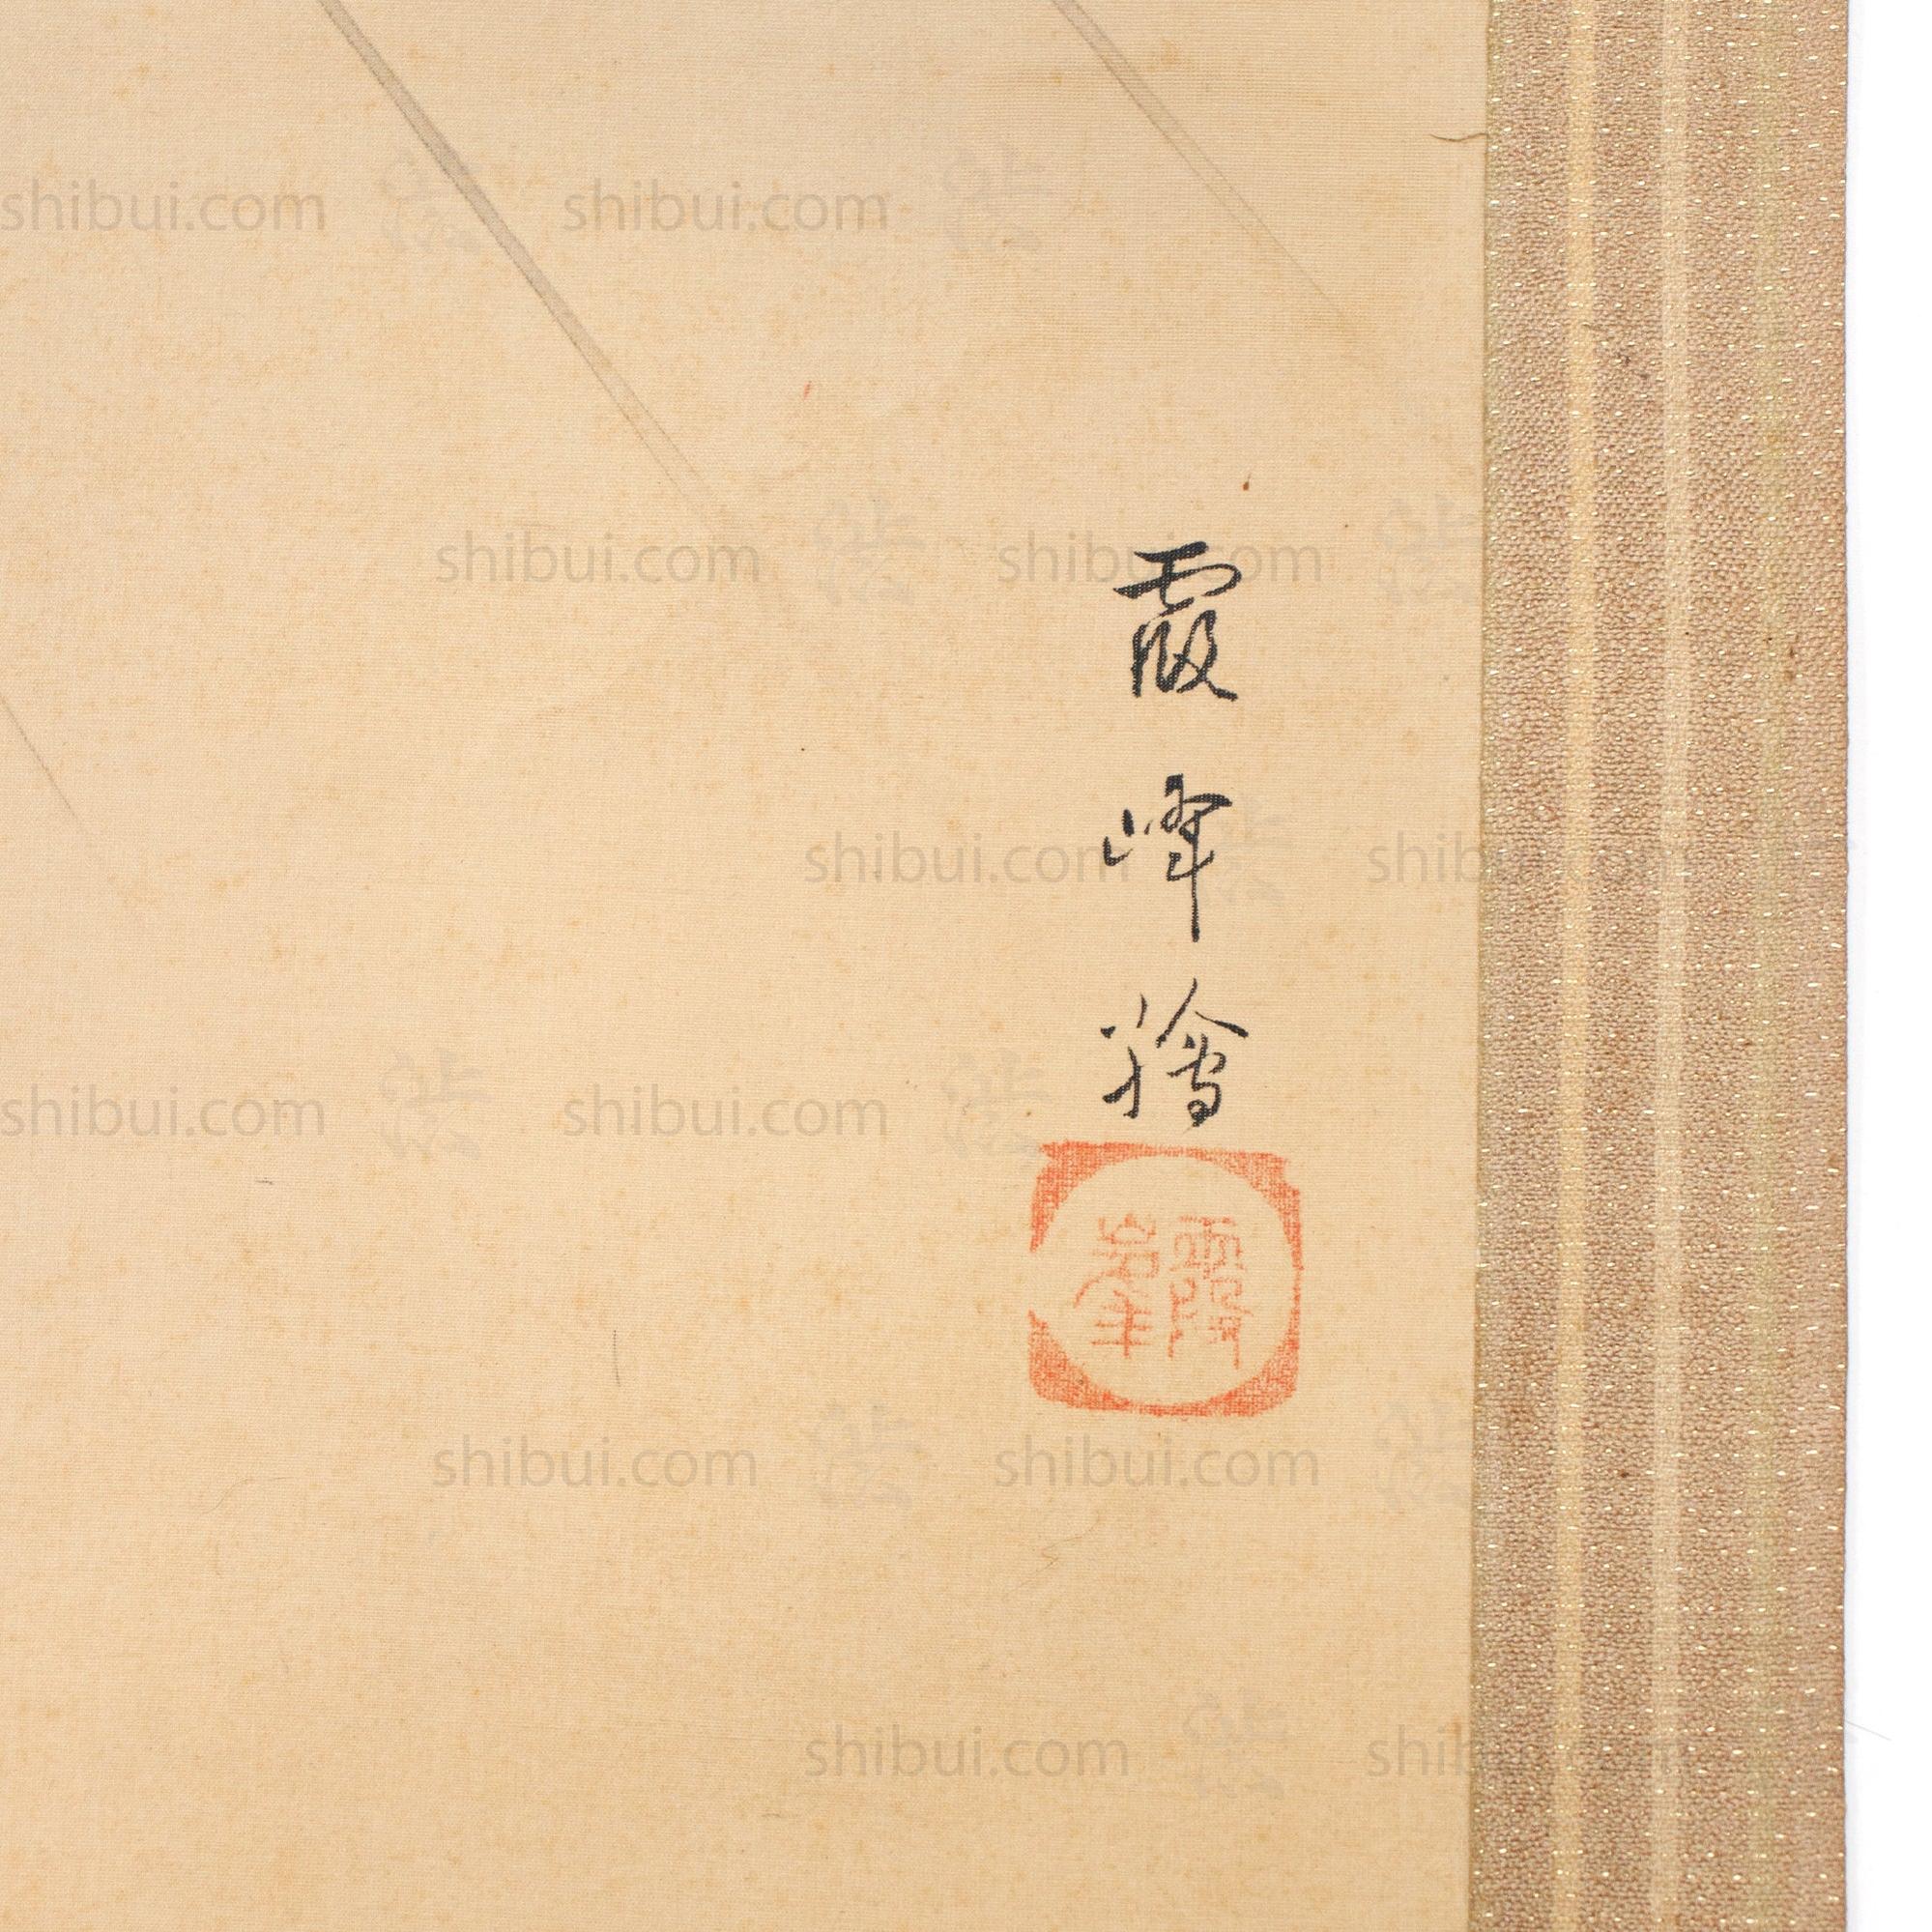 霞峰繪
霞峯
shibui.com 渋 shibui.com 渋
shibui.com 渋 shibui.com 渋
shibui.com 渋 shibui.com
shibui.com 渋 shibui.com 渋
shibui.com 渋 shibui.com 渋
shibui.com 渋 shibui.com